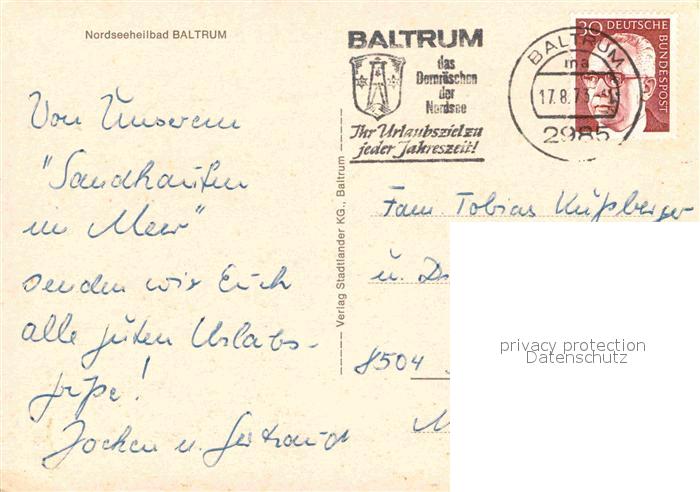 Nordseeheilbad BALTRUM
Von Unserem
"Sandhaufen
im Meer"
senden wir Euch
alle guten Urlabs-
grüße!
Jochen u. Gertraud
Verlag Stadtlander KG., Baltrum
BALTRUM
das
Dornröschen
der
Nordsee
Ihr Urlaubsziel zu
jeder Jahreszeit!
BALTRUM
ma
17.8.73
2985
30 DEUTSCHE
BUNDESPOST
Fam. Tobias Küßberger
u.
8504
privacy protection
Datenschutz